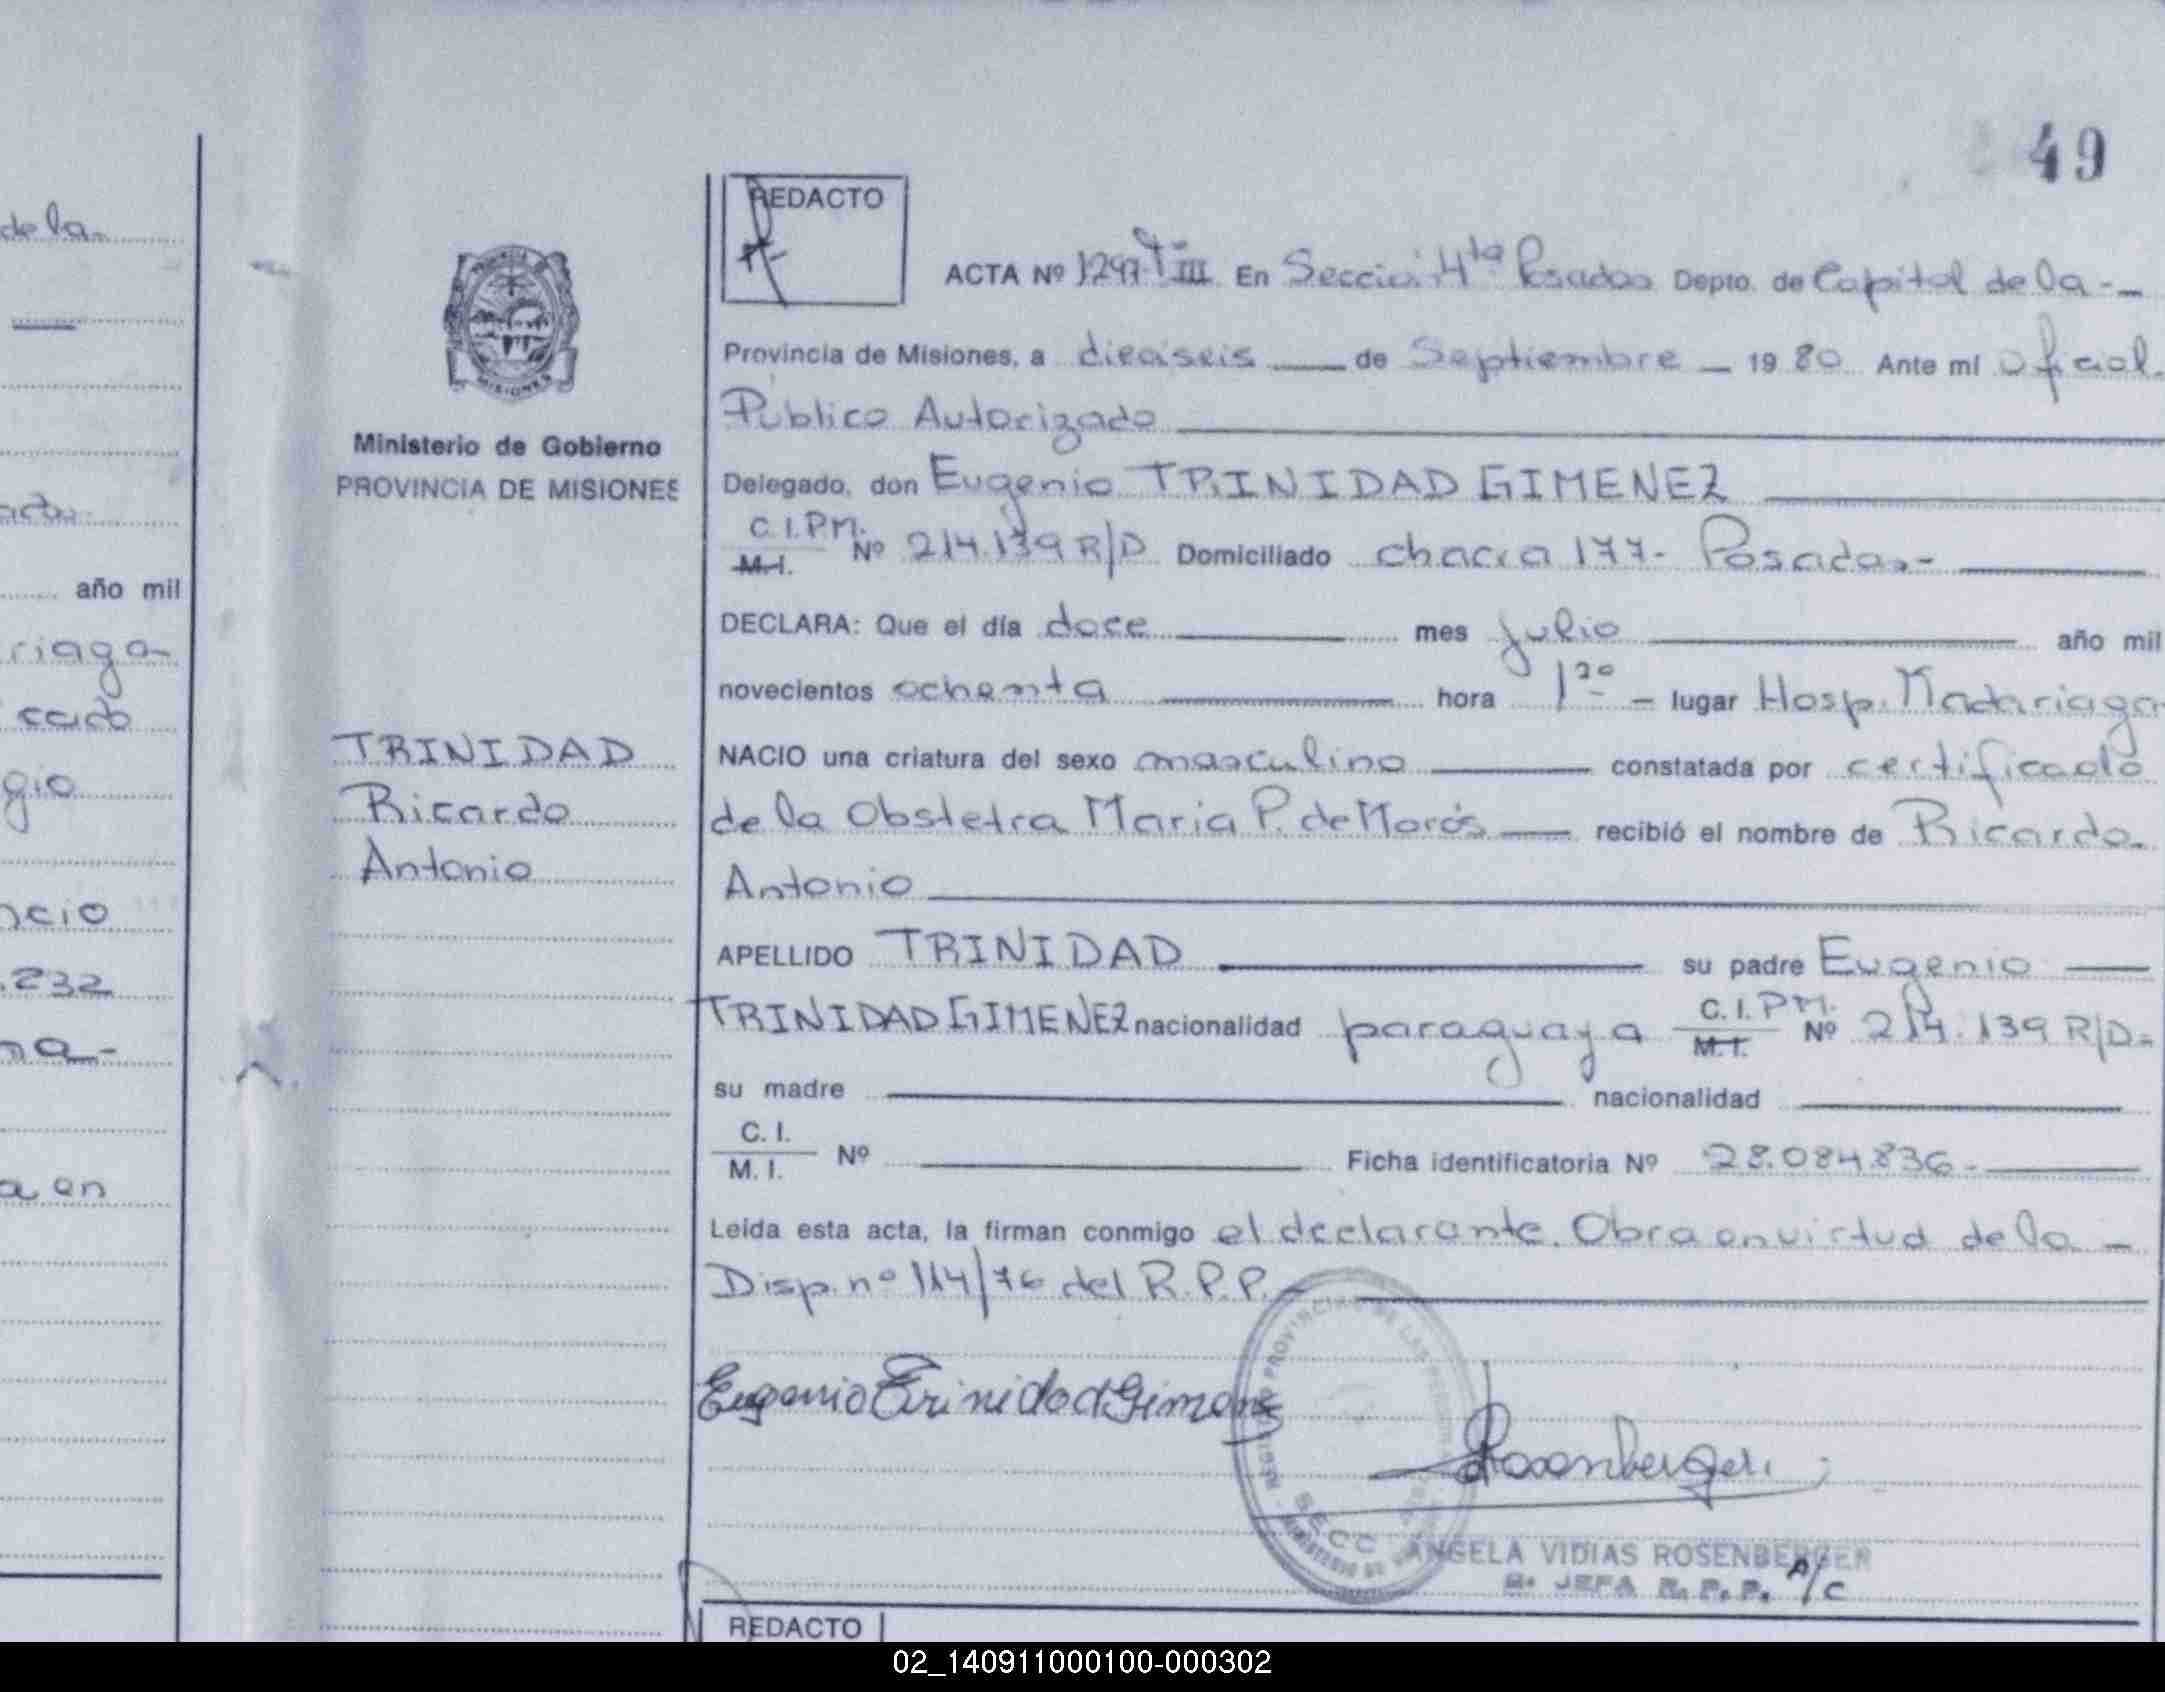 49
de la
REDACTO
ACTA Nº 1297 T III En Secció: 4ta Posadas Depto. de Capital de la - -
Provincia de Misiones, a dieciseis de Septiembre 19 80 Ante mí Oficial
Público Autorizado
Ministerio de Gobierno
PROVINCIA DE MISIONES
Delegado, don Eugenio TRINIDAD GIMENEZ
C.I.P.M.
M.I. Nº 214.139 R/D Domiciliado chacra 177- Posadas.-
año mil
DECLARA: Que el día doce mes julio año mil
riaga
novecientos ochenta hora 1 30 lugar Hosp. Madariaga
cado
TRINIDAD
NACIO una criatura del sexo masculino constatada por certificado
gio
Ricardo
de la Obstetra Maria P. de Morós recibió el nombre de Ricardo
Antonio
Antonio
ncio
APELLIDO TRINIDAD su padre Eugenio
.232
TRINIDAD GIMENEZ nacionalidad paraguaya C.I.P.M.
M.I. Nº 214.139 R/D=
na-
su madre nacionalidad
C. I.
M. I. Nº Ficha identificatoria Nº 28.084.836-
a en
Leída esta acta, la firman conmigo el declarante. Obra en virtud de la -
Disp. nº 114/76 del R.P.P.
Eugenio Trinidad Gimenez
Rosenberger
SECC
ANGELA VIDIAS ROSENBERGER
JEFA R. P. P. A/C
REDACTO
02_140911000100-000302